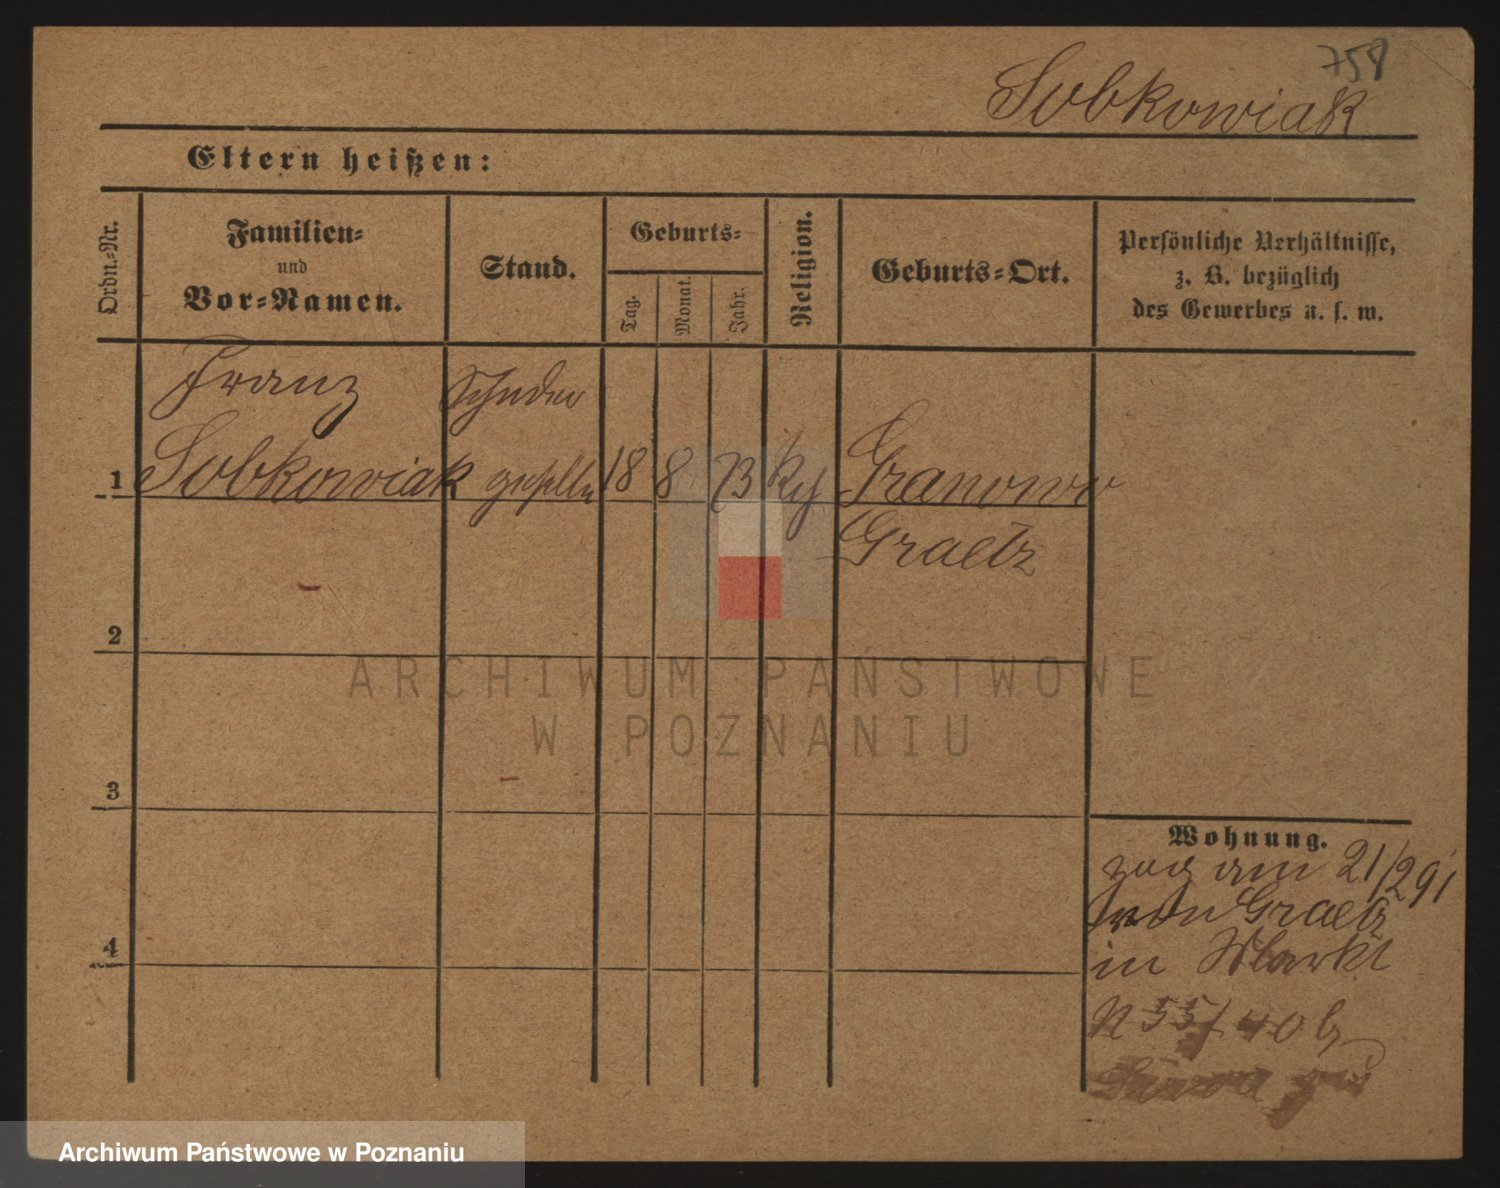 758
Sobkowiak
Eltern heißen:
Ordn.-Nr.
Familien-
und
Vor-Namen.
Stand.
Geburts-
Tag.
Monat.
Jahr.
Religion.
Geburts-Ort.
Persönliche Verhältnisse,
z. B. bezüglich
des Gewerbes u. s. w.
Franz
1 Sobkowiak
geselle
18 8 73
Granowo
Graetz
2
3
4
Wohnung.
zog am 21/2 91
von Graetz
in Markt
N 55/
ARCHIWUM PAŃSTWOWE
W POZNANIU
Archiwum Państwowe w Poznaniu